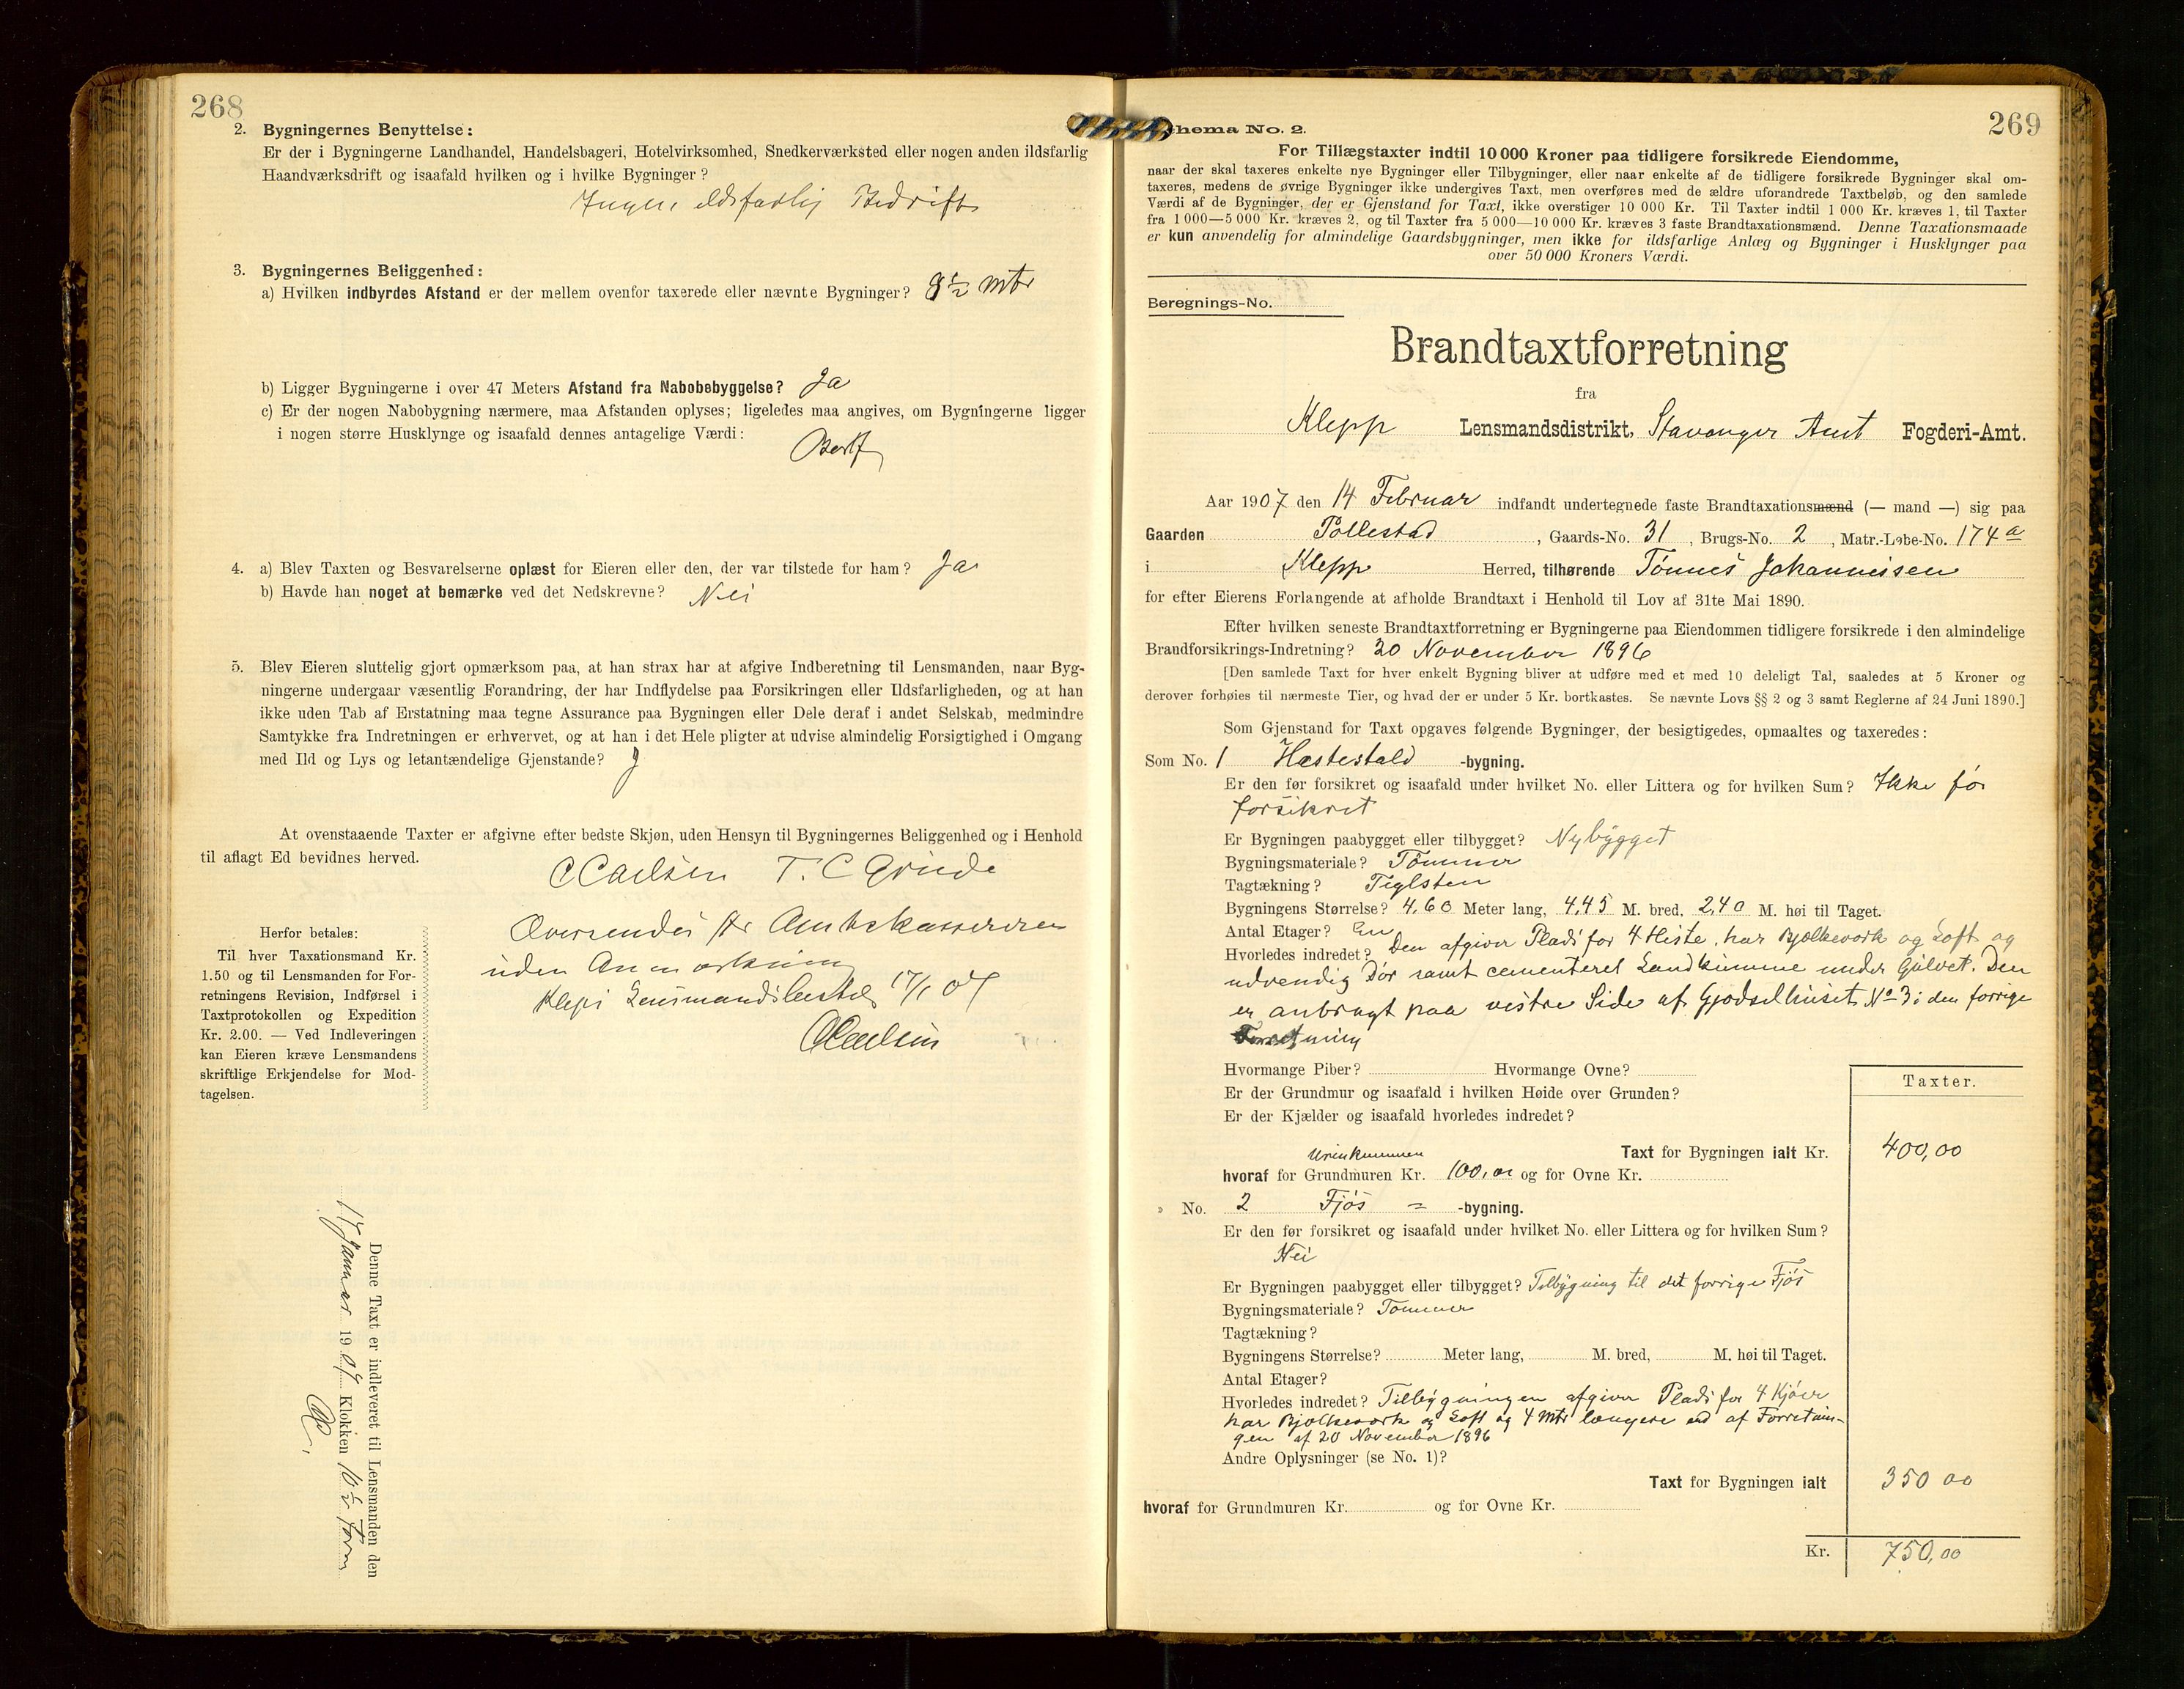 268
2. Bygningernes Benyttelse:
Er der i Bygningerne Landhandel, Handelsbageri, Hotelvirksomhed, Snedkerværksted eller nogen anden ildsfarlig
Haandværksdrift og isaafald hvilken og i hvilke Bygninger?
Ingen ildsfarlig Bedrift
3. Bygningernes Beliggenhed:
a) Hvilken indbyrdes Afstand er der mellem ovenfor taxerede eller nævnte Bygninger? 9½ mtr
b) Ligger Bygningerne i over 47 Meters Afstand fra Nabobebyggelse? Ja
c) Er der nogen Nabobygning nærmere, maa Afstanden oplyses; ligeledes maa angives, om Bygningerne ligger
i nogen større Husklynge og isaafald dennes antagelige Værdi:
Bortf
4. a) Blev Taxten og Besvarelserne oplæst for Eieren eller den, der var tilstede for ham? Ja
b) Havde han noget at bemærke ved det Nedskrevne? Nei
5. Blev Eieren sluttelig gjort opmærksom paa, at han strax har at afgive Indberetning til Lensmanden, naar Byg-
ningerne undergaar væsentlig Forandring, der har Indflydelse paa Forsikringen eller Ildsfarligheden, og at han
ikke uden Tab af Erstatning maa tegne Assurance paa Bygningen eller Dele deraf i andet Selskab, medmindre
Samtykke fra Indretningen er erhvervet, og at han i det Hele pligter at udvise almindelig Forsigtighed i Omgang
med Ild og Lys og letantændelige Gjenstande? J
At ovenstaaende Taxter er afgivne efter bedste Skjøn, uden Hensyn til Bygningernes Beliggenhed og i Henhold
til aflagt Ed bevidnes herved.
CCarlsen T. C Grude
Oversendes Hr Amtskassereren
uden Anmærkning
Klepp Lensmandsbestil 17/1 07
CCarlsen
Herfor betales:
Til hver Taxationsmand Kr.
1.50 og til Lensmanden for For-
retningens Revision, Indførsel i
Taxtprotokollen og Expedition
Kr. 2.00. — Ved Indleveringen
kan Eieren kræve Lensmandens
skriftlige Erkjendelse for Mod-
tagelsen.
Denne Taxt er indleveret til Lensmanden den
17 Januar 1907 Klokken 10½ Form
269
hema No. 2.
For Tillægstaxter indtil 10 000 Kroner paa tidligere forsikrede Eiendomme,
naar der skal taxeres enkelte nye Bygninger eller Tilbygninger, eller naar enkelte af de tidligere forsikrede Bygninger skal om-
taxeres, medens de øvrige Bygninger ikke undergives Taxt, men overføres med de ældre uforandrede Taxtbeløb, og den samlede
Værdi af de Bygninger, der er Gjenstand for Taxt, ikke overstiger 10 000 Kr. Til Taxter indtil 1 000 Kr. kræves 1, til Taxter
fra 1 000—5 000 Kr. kræves 2, og til Taxter fra 5 000—10 000 Kr. kræves 3 faste Brandtaxationsmænd. Denne Taxationsmaade
er kun anvendelig for almindelige Gaardsbygninger, men ikke for ildsfarlige Anlæg og Bygninger i Husklynger paa
over 50 000 Kroners Værdi.
Beregnings-No.
Brandtaxtforretning
fra
Klepp Lensmandsdistrikt, Stavanger Amt Fogderi-Amt.
Aar 1907 den 14 Februar indfandt undertegnede faste Brandtaxationsmænd (— mand —) sig paa
Gaarden Pollestad, Gaards-No. 31, Brugs-No. 2, Matr.-Løbe-No. 174a
i Klepp Herred, tilhørende Tønnes Johannessen
for efter Eierens Forlangende at afholde Brandtaxt i Henhold til Lov af 31te Mai 1890.
Efter hvilken seneste Brandtaxtforretning er Bygningerne paa Eiendommen tidligere forsikrede i den almindelige
Brandforsikrings-Indretning? 20 November 1896
[Den samlede Taxt for hver enkelt Bygning bliver at udføre med et med 10 deleligt Tal, saaledes at 5 Kroner og
derover forhøies til nærmeste Tier, og hvad der er under 5 Kr. bortkastes. Se nævnte Lovs §§ 2 og 3 samt Reglerne af 24 Juni 1890.]
Som Gjenstand for Taxt opgaves følgende Bygninger, der besigtigedes, opmaaltes og taxeredes:
Som No. 1 Hestestald -bygning.
Er den før forsikret og isaafald under hvilket No. eller Littera og for hvilken Sum? Ikke før
forsikret
Er Bygningen paabygget eller tilbygget? Nybygget
Bygningsmateriale? Tømmer
Tagtækning? Teglsten
Bygningens Størrelse? 4,60 Meter lang, 4,45 M. bred, 2,40 M. høi til Taget.
Antal Etager? En
Hvorledes indredet? Den afgiver Plads for 4 Heste, har Bjælkeværk og Loft og
udvendig Dør samt cementeret Landkumme under Gulvet. Den
er anbragt paa vestre Side af Gjødselhuset No 3 i den forrige
Forretning
Hvormange Piber? Hvormange Ovne?
Er der Grundmur og isaafald i hvilken Høide over Grunden?
Er der Kjælder og isaafald hvorledes indredet?
Taxter.
Taxt for Bygningen ialt Kr. 400,00
Urinkummen
hvoraf for Grundmuren Kr. 100,00 og for Ovne Kr.
» No. 2 Fjøs = -bygning.
Er den før forsikret og isaafald under hvilket No. eller Littera og for hvilken Sum?
Nei
Er Bygningen paabygget eller tilbygget? Tilbygning til det forrige Fjøs
Bygningsmateriale? Tømmer
Tagtækning?
Bygningens Størrelse? Meter lang, M. bred, M. høi til Taget.
Antal Etager?
Hvorledes indredet? Tilbygningen afgiver Plads for 4 Kjøer
har Bjælkeværk og Loft og 4 mtr længere end af Forretnin-
gen af 20 November 1896
Andre Oplysninger (se No. 1)?
Taxt for Bygningen ialt 350 00
hvoraf for Grundmuren Kr. og for Ovne Kr.
Kr. 750,00